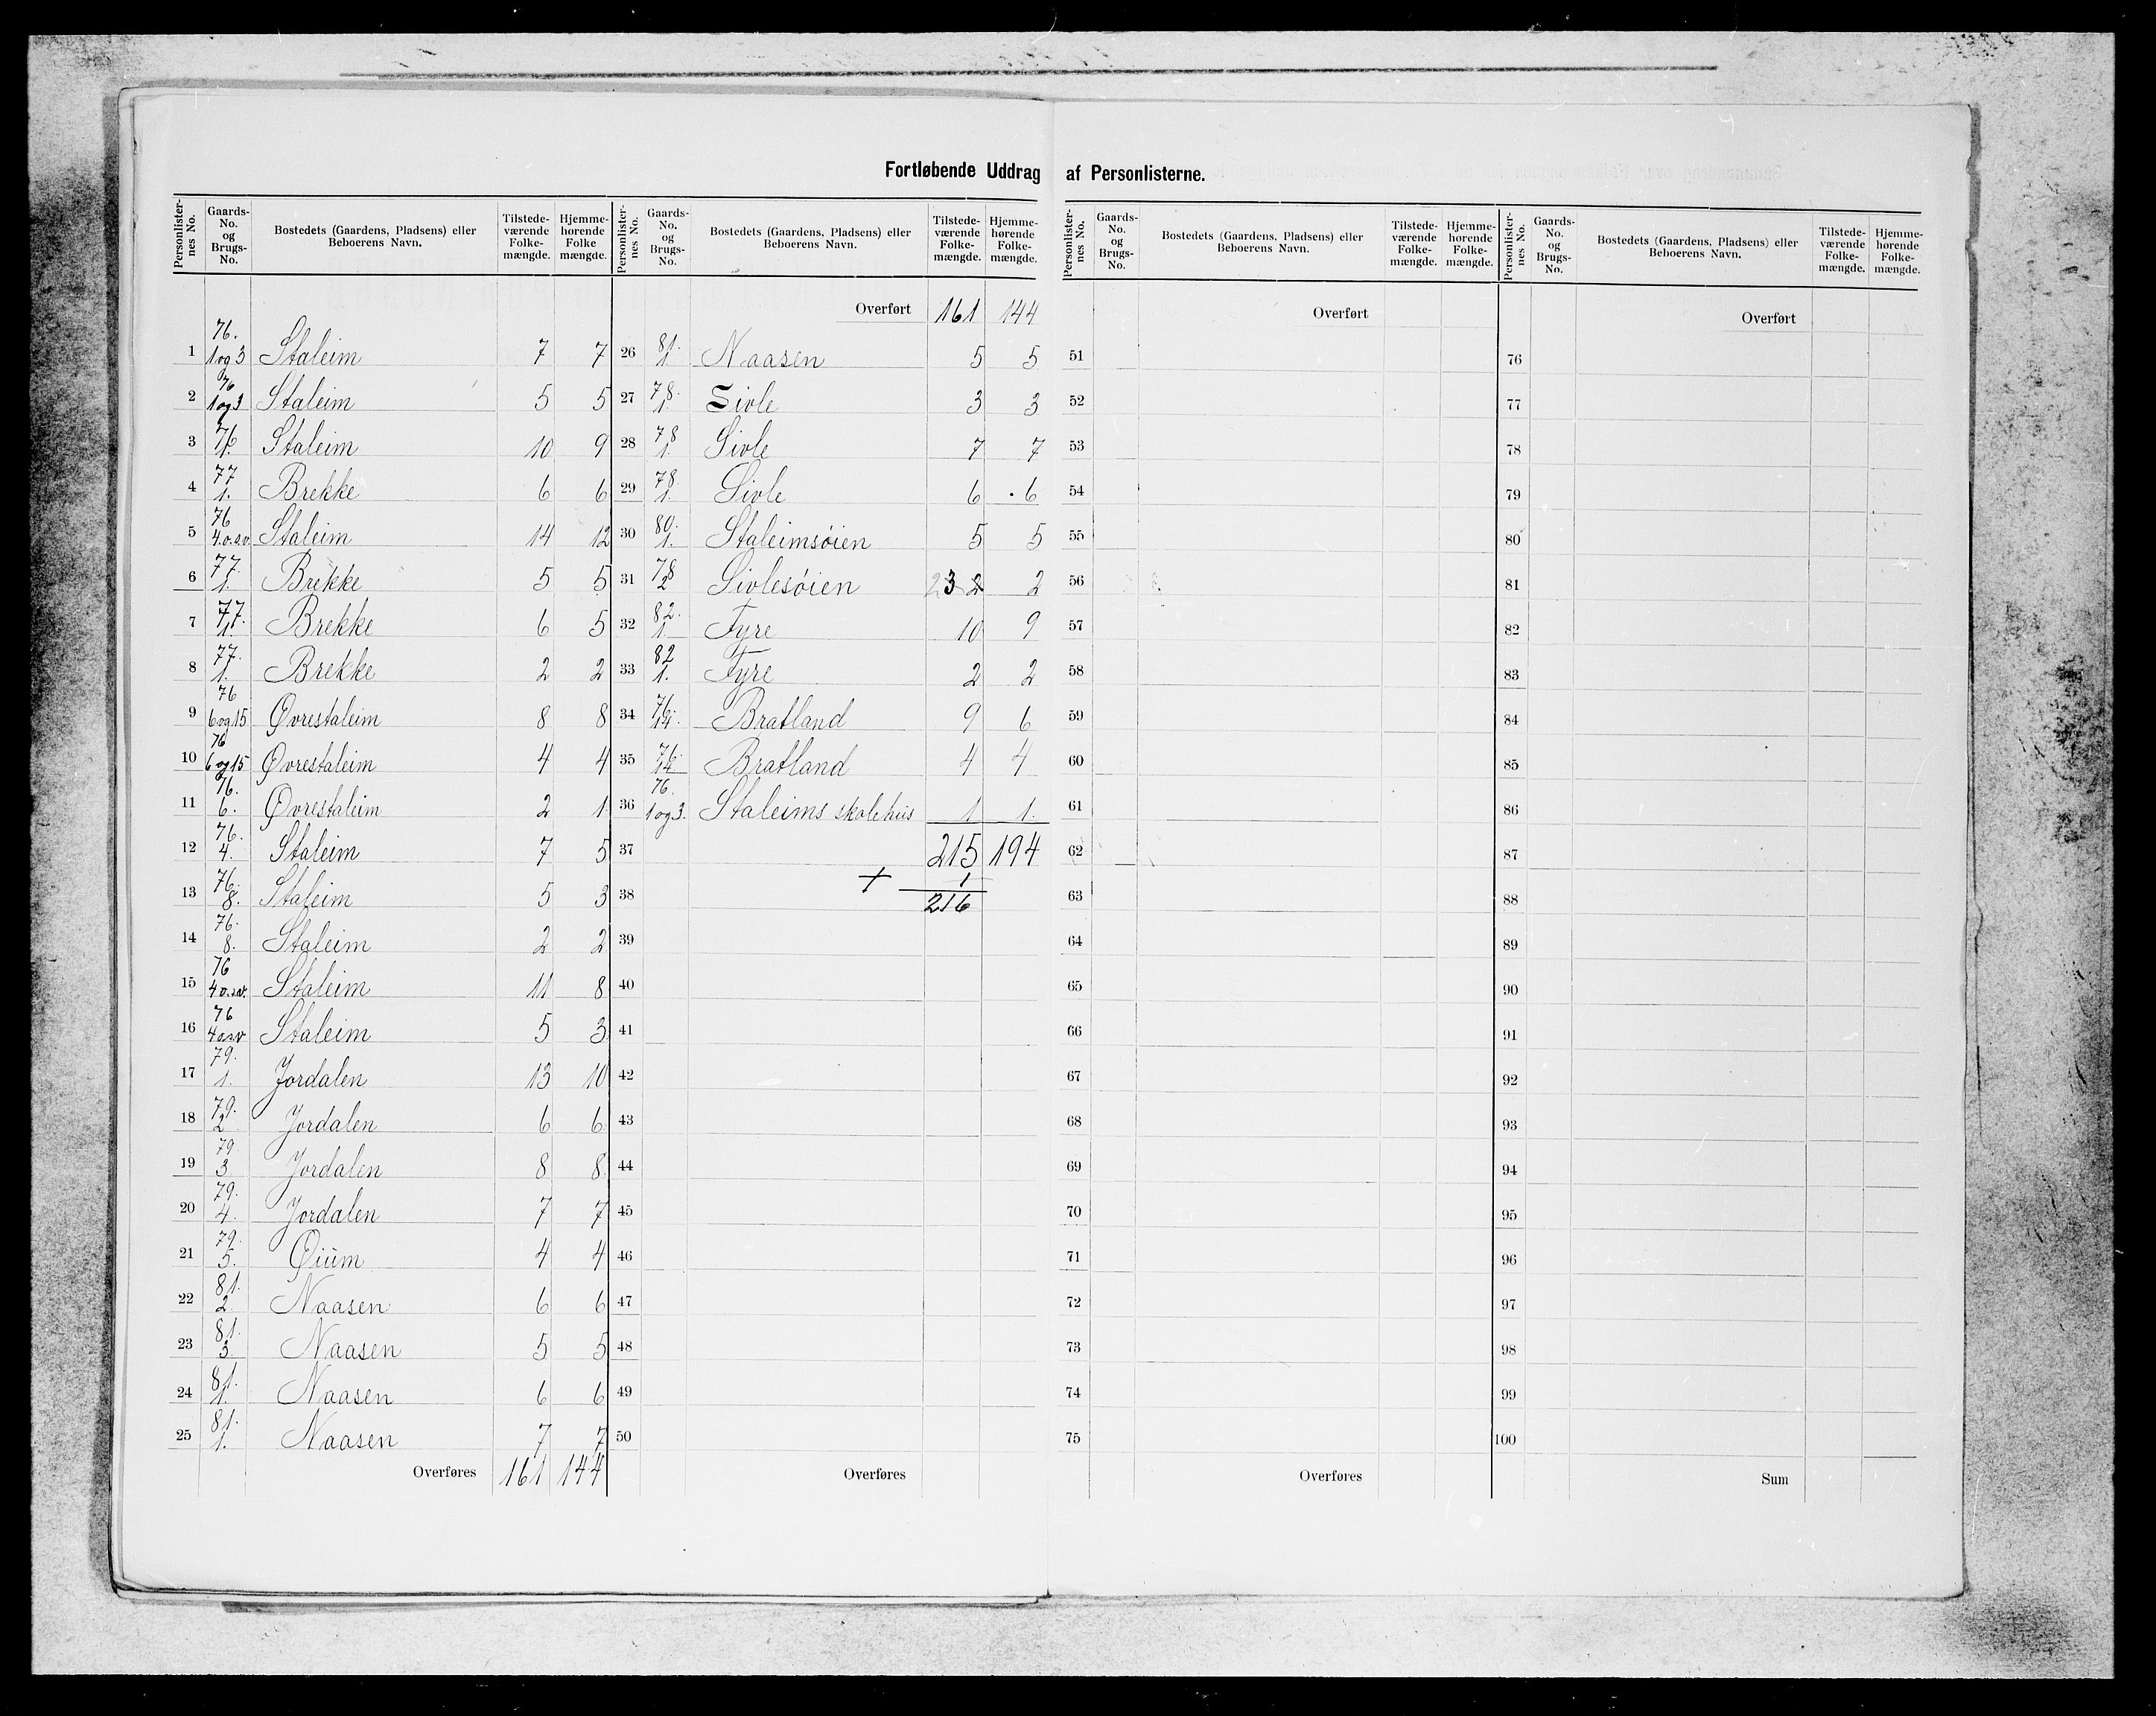 Fortløbende Uddrag af Personlisterne.
Personlister-nes No. | Gaards-No. og Brugs-No. | Bostedets (Gaardens, Pladsens) eller Beboerens Navn. | Tilstede-værende Folke-mængde. | Hjemme-hørende Folke mængde.
1 76. 1 og 3 Staleim 7 7
2 76 1 og 3 Staleim 5 5
3 76 1. Staleim 10 9
4 77 1. Brekke 6 6
5 76 4.o.s.v. Staleim 14 12
6 77. 1. Brekke 5 5
7 77. 1. Brekke 6 5
8 77. 1. Brekke 2 2
9 76 6 og 15 Øvrestaleim 8 8
10 76 6 og 15 Øvrestaleim 4 4
11 76. 6. Øvrestaleim 2 1
12 76. 4. Staleim 7 5
13 76. 8. Staleim 5 3
14 76. 8. Staleim 2 2
15 76 4 o.s.v. Staleim 11 8
16 76 4 o.s.v Staleim 5 3
17 79. 1. Jordalen 13 10
18 79. 2 Jordalen 6 6
19 79 3 Jordalen 8 8
20 79. 4. Jordalen 7 7
21 79. 5. Øium 4 4
22 81. 2. Naasen 6 6
23 81. 3. Naasen 5 5
24 81. 1. Naasen 6 6
25 81. 1. Naasen 7 7
Overføres 161 144
Personlister-nes No. | Gaards-No. og Brugs-No. | Bostedets (Gaardens, Pladsens) eller Beboerens Navn. | Tilstede-værende Folke-mængde. | Hjemme-hørende Folke-mængde.
Overført 161 144
26 81. 1 Naasen 5 5
27 78. 1. Sivle 3 3
28 78 1. Sivle 7 7
29 78 1. Sivle 6 6
30 80. 1. Staleimsøien 5 5
31 78 2 Sivlesøien 2 3 2 2
32 82. 1. Fyre 10 9
33 82 1. Fyre 2 2
34 76. 14. Bratland 9 6
35 76. 14 Bratland 4 4
36 76. 1 og 3. Staleims skolehus 1 1.
37 215 194
38 + 1
216
39
40
41
42
43
44
45
46
47
48
49
50
Overføres
Personlister-nes No. | Gaards-No. og Brugs-No. | Bostedets (Gaardens, Pladsens) eller Beboerens Navn. | Tilstede-værende Folke-mængde. | Hjemme-hørende Folke-mængde.
Overført
51
52
53
54
55
56
57
58
59
60
61
62
63
64
65
66
67
68
69
70
71
72
73
74
75
Overføres
Personlister-nes No. | Gaards-No. og Brugs-No. | Bostedets (Gaardens, Pladsens) eller Beboerens Navn. | Tilstede-værende Folke-mængde. | Hjemme-hørende Folke-mængde.
Overført
76
77
78
79
80
81
82
83
84
85
86
87
88
89
90
91
92
93
94
95
96
97
98
99
100
Sum